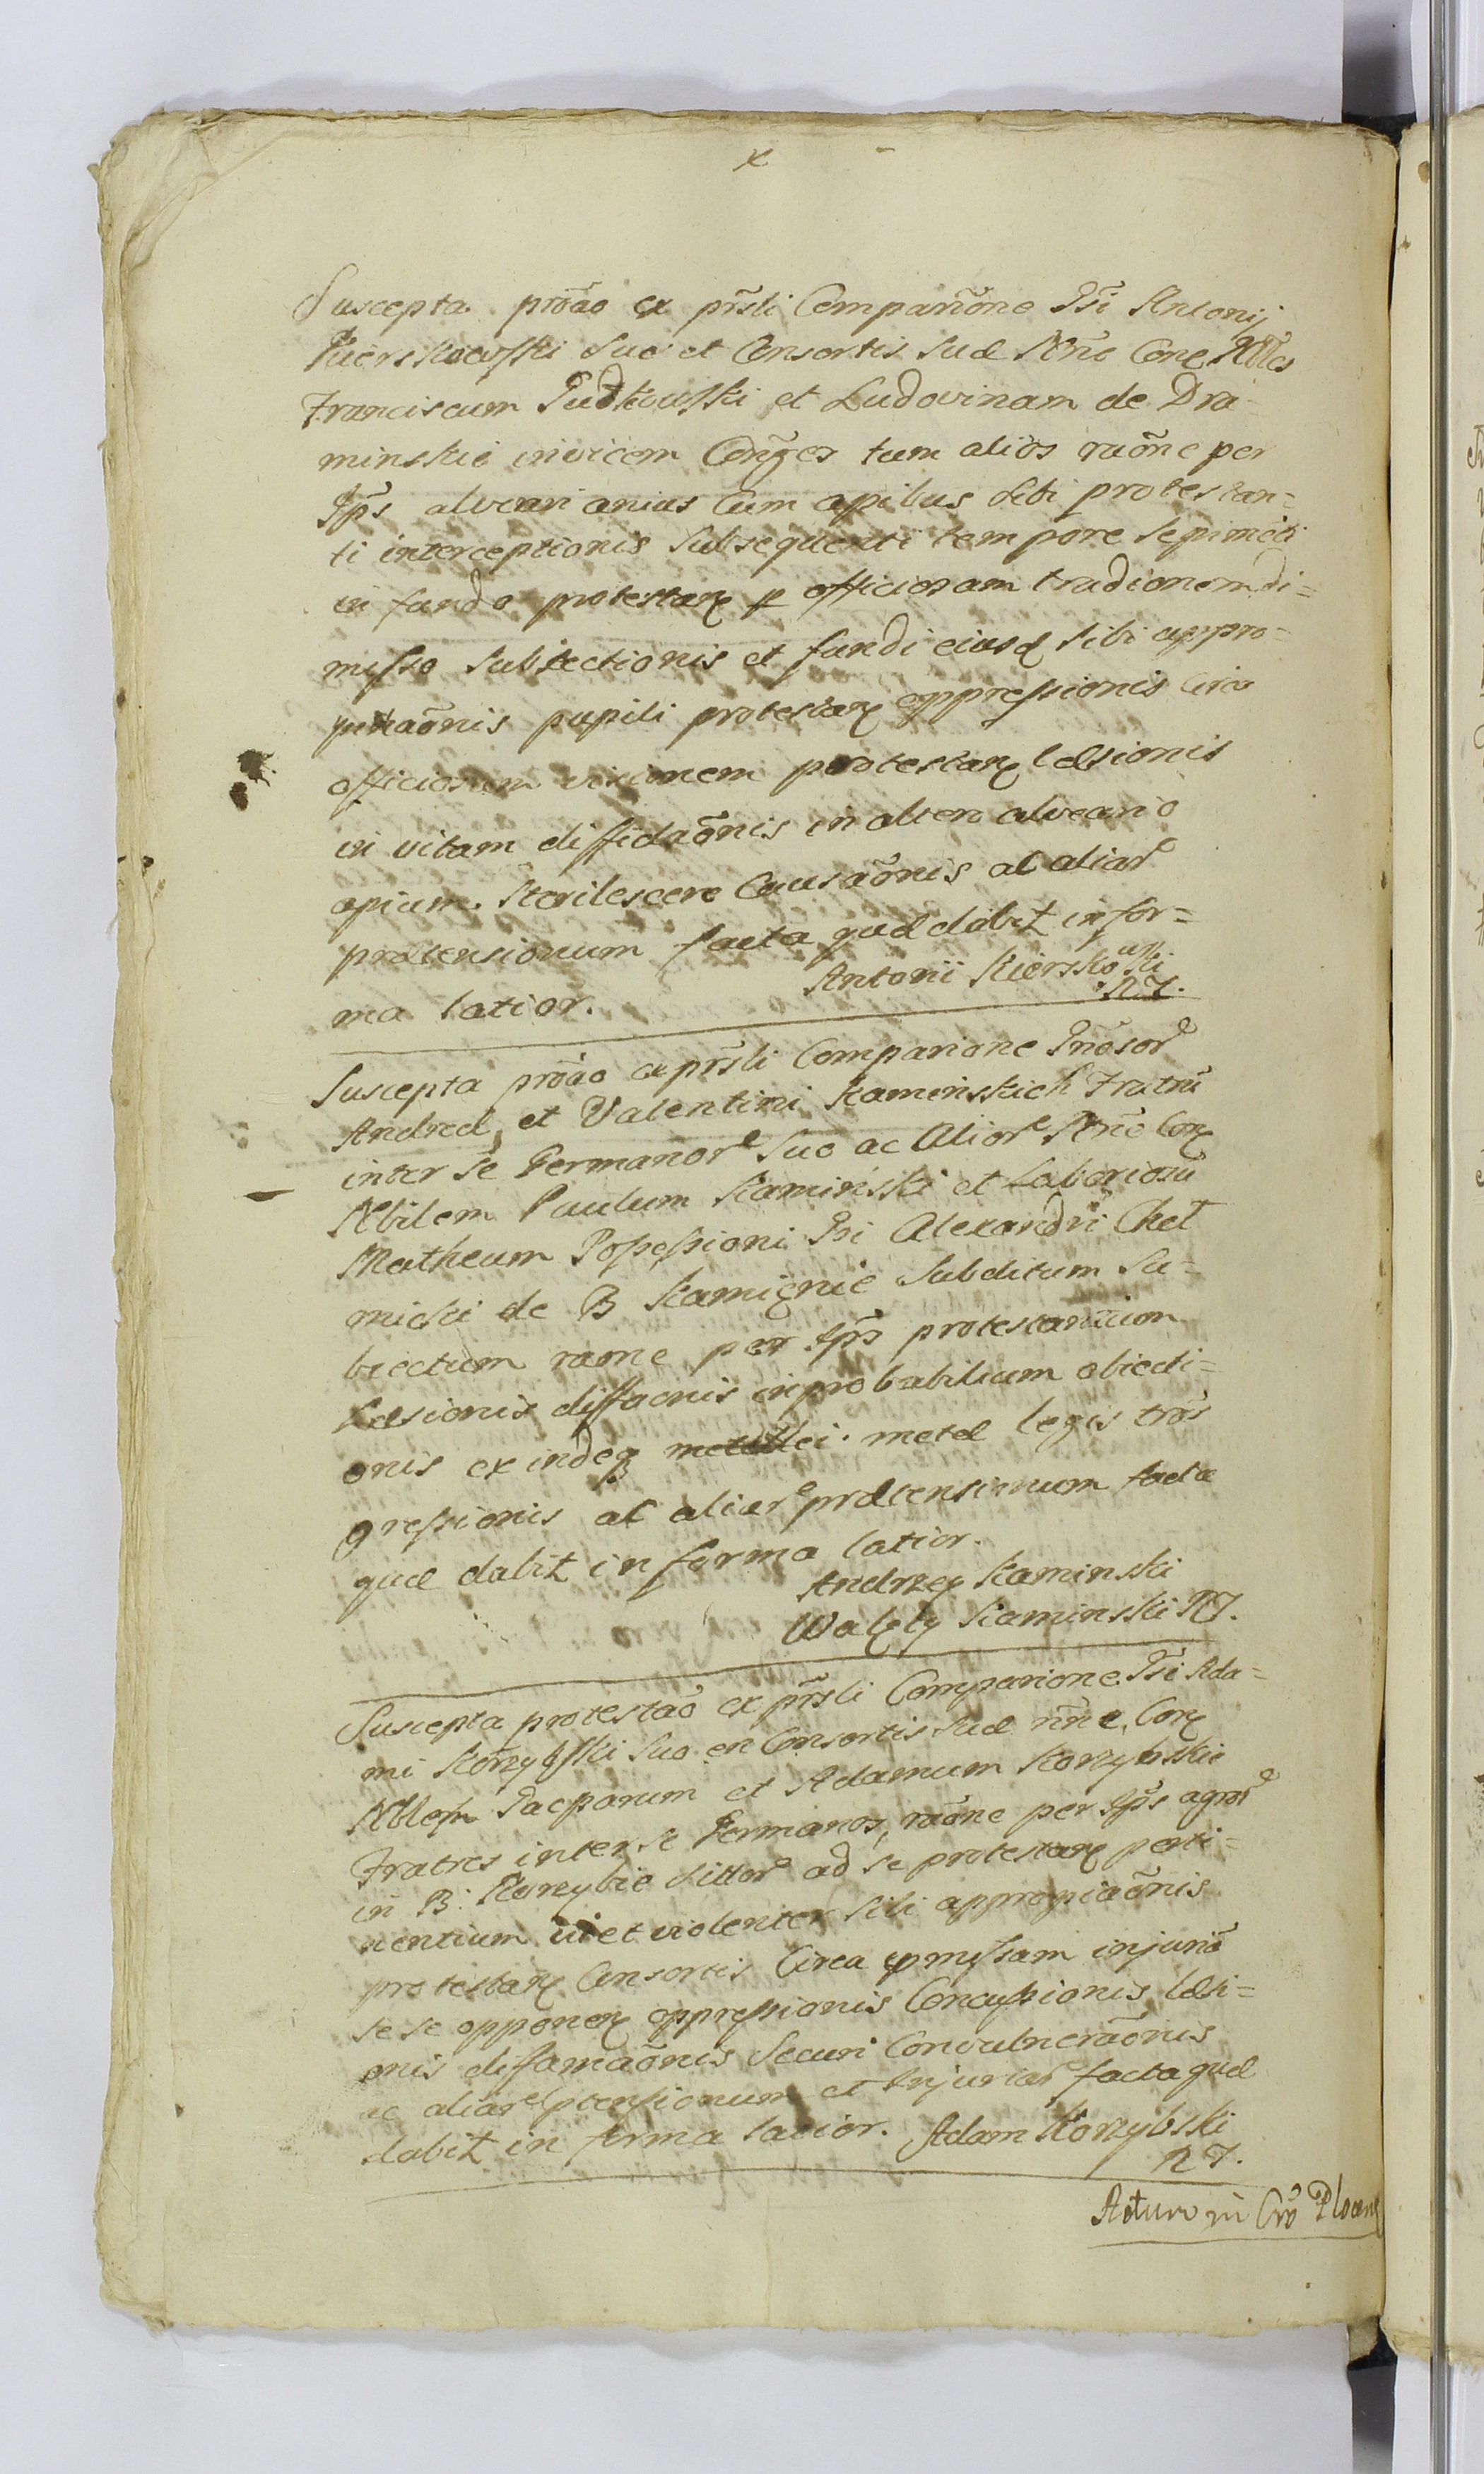 x
Suscepta prõao ex prs̃li Compariõne Gsi Antonij
Kierskowski suo et Consortis suæ Nñe Conẽ NNles
Franciscum Pudkowski et Ludovinam de Dra-
minskie invicem Conges tum alios raõne per
Ips̃ alveari unius Cum apibus Sibi protestan=
ti interceptionis subsequenti tempore sepimẽti
in fundo protestañ p officiosam tradionem di=
misso subiectionis et fundi eiusd sibi appro=
priaõnis pupili protestañ oppressionis Circa
officiosam visionem protestañ læsionis
in vitam diffidaõnis in altero alveario
apium Sterilescere Causaõnis ac aliar
prætensionum facta quæ dabit in for=
ma latior. Antonii Kierskowski
RJ.
Suscepta prõao ex prs̃li Comparione Gñosor
Andreæ et Valentini Kaminskich Fratrũ
inter se Germanor suo ac Alior Nñe Conẽ
Nbilem Paulum Kaminski et Laboriosũ
Matheum Possessioni Gsi Alexandri Chel
micki de B Kamięnie Subditum Su=
biectum raõne per Ips̃ protestantium
Læsionis diffaõnis inprobabilium obiecti=
onis ex indeq metæ legis trãs
gressionis ac aliar prætensionum facta
quæ dabit in forma latior.
Andrzey Kaminski
Walęty Kaminski RJ.
Suscepta protestaõ ex prs̃li Comparione Gsi Ada=
mi Korzybski suo en Consortis suæ nñe, Conẽ
NNlem Gacparum et Adamum Korzybskie
Fratres inter se Germanos, raõne per Ips̃ agror
in B: Korzybie sittor ad se protestañ perti=
nentium vi et violenter sibi appropiaõnis
protestañ Consortis Circa pmissam injuriã
se se opponeñ oppressionis Concussionis læsi=
onis difamaõnis Securi Convulneraõnis
ac aliar ptensionum et Injuriar facta quæ
dabit in forma latior. Adam Korzybski
RJ.
Actum in Crõ Plocen